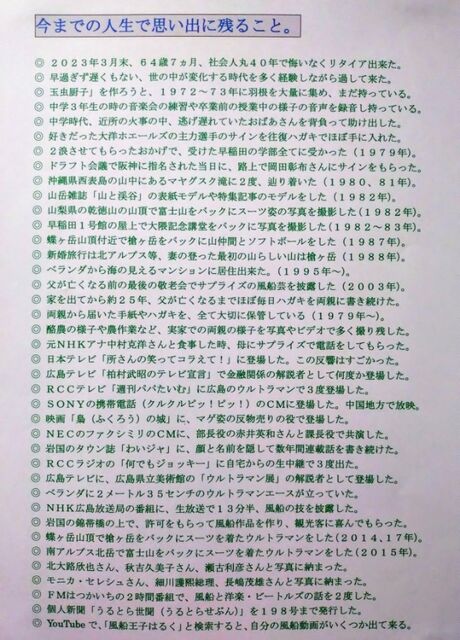 今までの人生で思い出に残ること。
◎ ２０２３年３月末、６４歳７ヵ月、社会人丸４０年で悔いなくリタイア出来た。
◎ 早過ぎず遅くもない、世の中が変化する時代を多く経験しながら過して来た。
◎ 玉虫厨子」を作ろうと、１９７２～７３年に羽根を大量に集め、まだ持っている。
◎ 中学３年生の時の音楽会の練習や卒業前の授業中の様子の音声を録音し持っている。
◎ 中学時代、近所の火事の中、逃げ遅れていたおばあさんを背負って助け出した。
◎ 好きだった大洋ホエールズの主力選手のサインを往復ハガキでほぼ手に入れた。
◎ ２浪させてもらったおかげで、受けた早稲田の学部全てに受かった（１９７９年）。
◎ ドラフト会議で阪神に指名された当日に、路上で岡田彰布さんにサインをもらった。
◎ 沖縄県西表島の山中にあるマヤグスク滝に２度、辿り着いた（１９８０、８１年）。
◎ 山岳雑誌「山と渓谷」の表紙モデルや特集記事のモデルをした（１９８２年）。
◎ 山梨県の乾徳山の山頂で富士山をバックにスーツ姿の写真を撮影した（１９８２年）。
◎ 早稲田１号館の屋上で大隈記念講堂をバックに写真を撮影した（１９８２～８３年）。
◎ 蝶ヶ岳山頂付近で槍ヶ岳をバックに山仲間とソフトボールをした（１９８７年）。
◎ 新婚旅行は北アルプス等、妻の登った最初の山らしい山は槍ヶ岳（１９８８年）。
◎ ベランダから海の見えるマンションに居住出来た。（１９９５年～）。
◎ 父が亡くなる前の最後の敬老会でサプライズの風船芸を披露した（２００３年）。
◎ 家を出てから約２５年、父が亡くなるまでほぼ毎日ハガキを両親に書き続けた。
◎ 両親から届いた手紙やハガキを、全て大切に保管している（１９７９年～）。
◎ 酪農の様子や農作業など、実家での両親の様子を写真やビデオで多く撮り残した。
◎ 元ＮＨＫアナ中村克洋さんと食事した時、母にサプライズで電話をしてもらった。
◎ 日本テレビ「所さんの笑ってコラえて！」に登場した。この反響はすごかった。
◎ 広島テレビ「柏村武昭のテレビ宣言」で金融関係の解説者として何度か登場した。
◎ ＲＣＣテレビ「週刊パパたいむ」に広島のウルトラマンで３度登場した。
◎ ＳＯＮＹの携帯電話（クルクルピッ！ピッ！）のＣＭに登場した。中国地方で放映。
◎ 映画「梟（ふくろう）の城」に、マゲ姿の反物売りの役で登場した。
◎ ＮＥＣのファクシミリのＣＭに、部長役の赤井英和さんと課長役で共演した。
◎ 岩国のタウン誌「わいジャ」に、顔と名前を隠して数年間連載話を書き続けた。
◎ ＲＣＣラジオの「何でもジョッキー」に自宅からの生中継で３度出た。
◎ 広島テレビに、広島県立美術館の「ウルトラマン展」の解説者として登場した。
◎ ベランダに２メートル３５センチのウルトラマンエースが立っていた。
◎ ＮＨＫ広島放送局の番組に、生放送で１３分半、風船の技を披露した。
◎ 岩国の錦帯橋の上で、許可をもらって風船作品を作り、観光客に喜んでもらった。
◎ 蝶ヶ岳山頂で槍ヶ岳をバックにスーツを着たウルトラマンをした（２０１４、１７年）。
◎ 南アルプス北岳で富士山をバックにスーツを着たウルトラマンをした（２０１５年）。
◎ 北大路欣也さん、秋吉久美子さん、瀬古利彦さんと写真に納まった。
◎ モニカ・セレシュさん、細川護熙総理、長嶋茂雄さんと写真に納まった。
◎ ＦＭはつかいちの２時間番組で、風船と洋楽・ビートルズの話を２度した。
◎ 個人新聞「うるとら世聞（うるとらせぶん）」を１９８号まで発行した。
◎ YouTubeで、「風船王子はるく」と検索すると、自分の風船動画がいくつか出て来る。